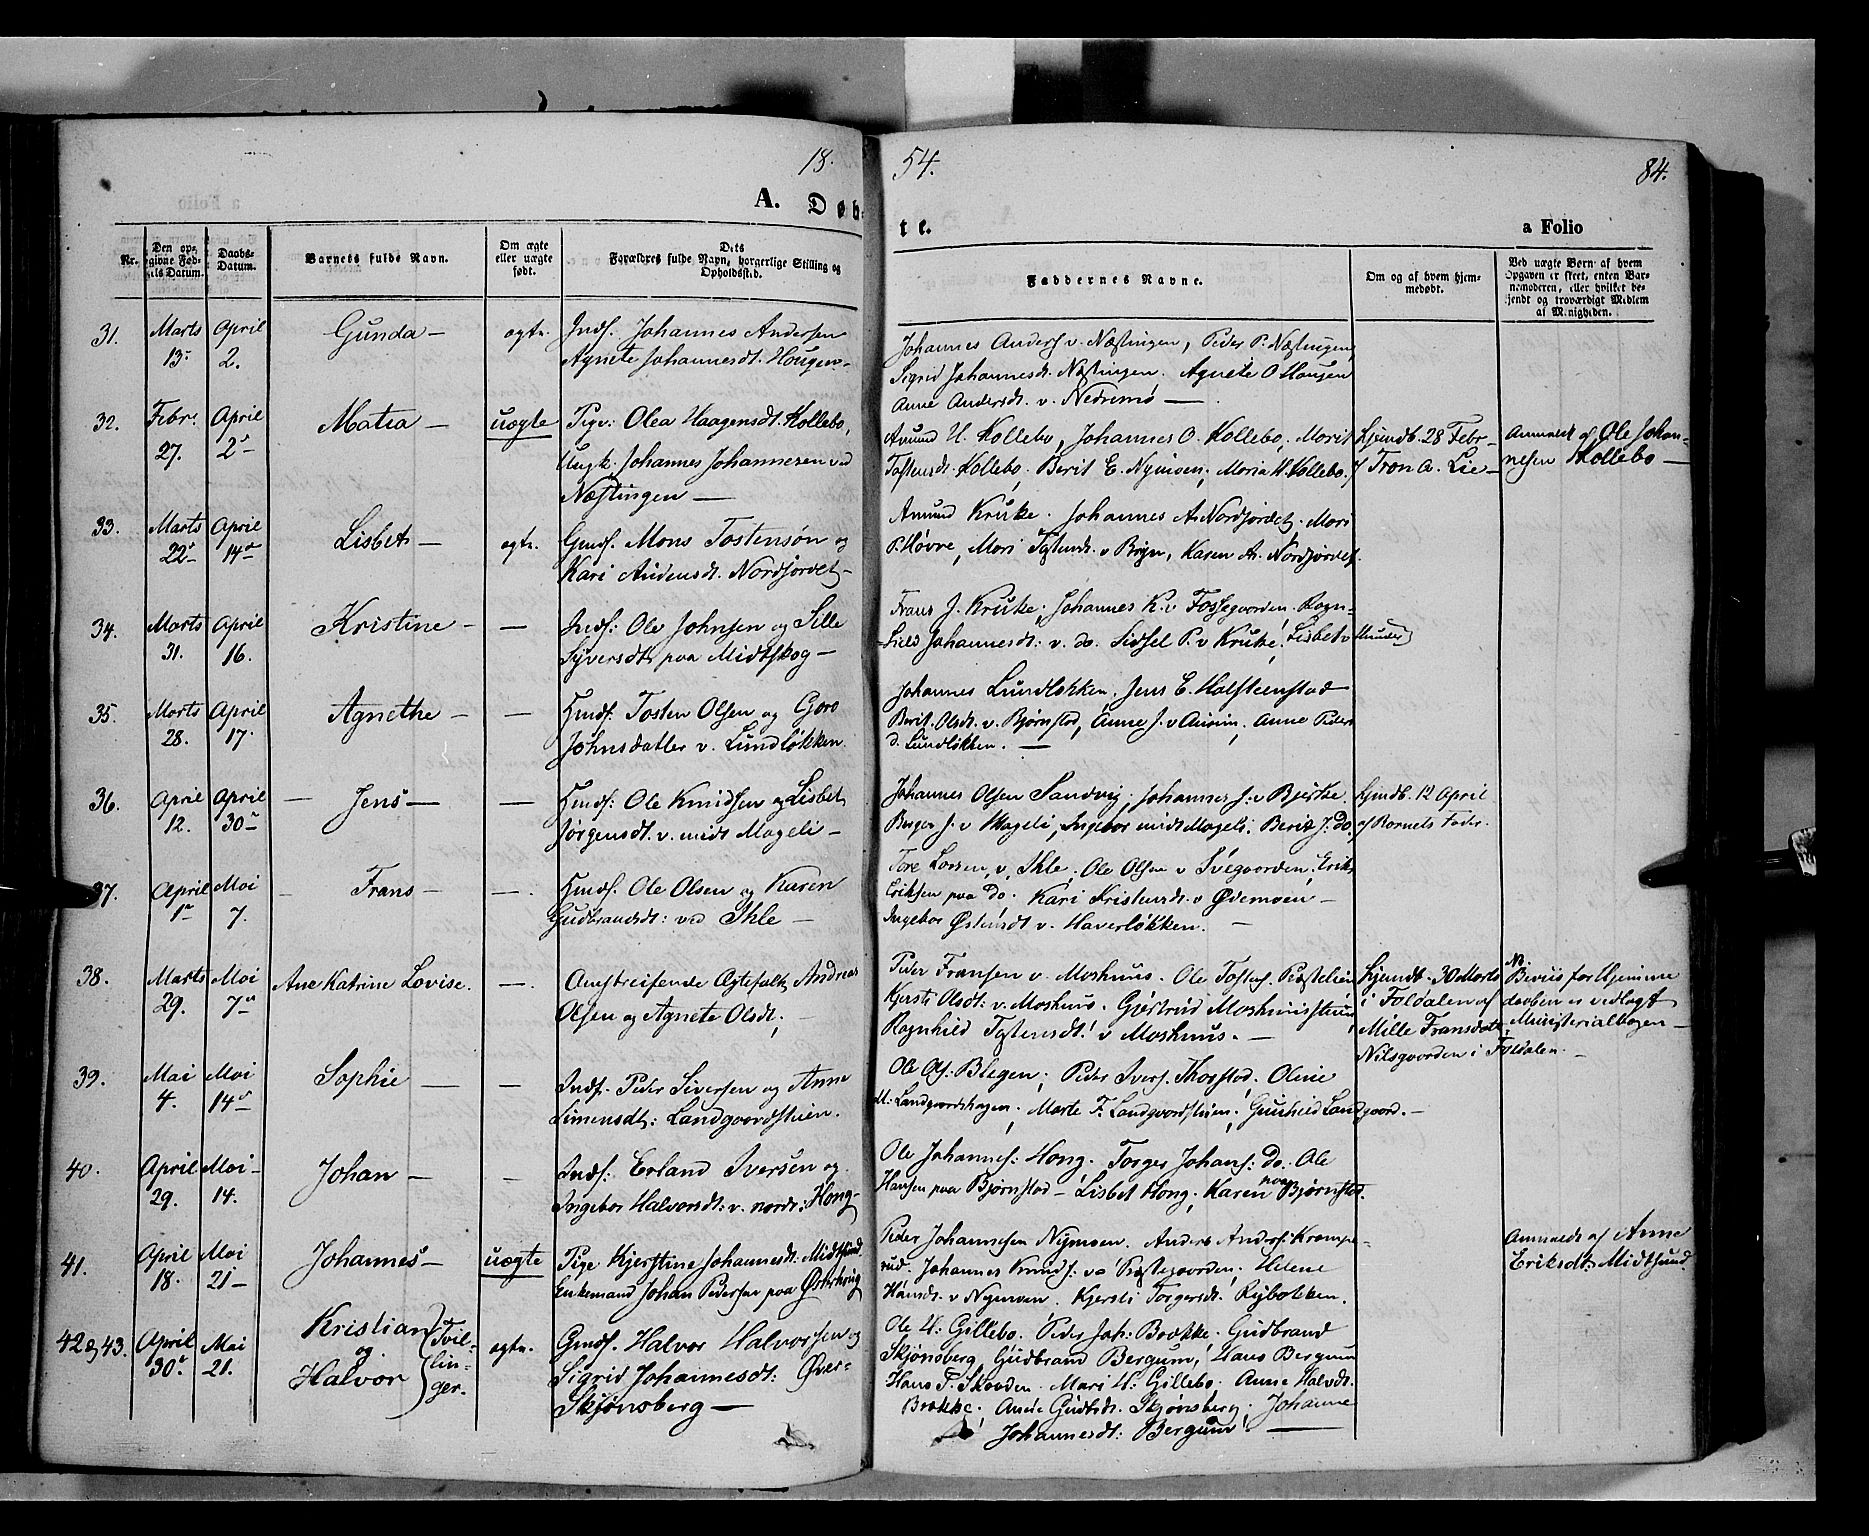 18.
54.
84.
A. Døb-
te.
a Folio
Nr.
Den op-
givne Fød-
sels Datum.
Daabs-
Datum.
Barnets fulde Navn.
Om ægte
eller uægte
født.
Dets
Forældres fulde Navn, borgerlige Stilling og
Opholdssted.
Faddernes Navne.
Om og af hvem hjem-
medøbt.
Ved uægte Børn: af hvem
Opgaven er skeet, enten Bar-
nemoderen, eller hvilket be-
kjendt og troværdigt Medlem
af Menigheden.
31. Marts 13. April 2. Gunda – ægte. Inds. Johannes Andersen
Agnete Johannesdt. Hougen –
Johannes Anders. v. Næstingen, Peder P. Næstingen
Sigrid Johannesdt. Næstingen. Agnete O Hougen
Anne Andersdt. v. Nedremo –
32. Febr. 27. April 2. Matia – uægte Pige: Olea Haagensdt. Kollebo,
Ungk. Johannes Johannesen ved
Næstingen –
Amund H. Kollebo, Johannes O. Kollebo, Marit
Tostensdt. Kollebo, Berit E. Nymoen, Maria H. Kollebo.
Hjemdb. 28 Febr –
af Tron A. Lie –
Anmeldt af Ole Johan-
nesen Kollebo –
33. Marts 22 April 14 Lisbet – ægte. Gmds. Mons Tostensøn og
Kari Audensdt. Nordjordet –
Amund Kruke. Johannes A. Nordjordet. Mari
P. Høvre, Mari Tostensdt. v Bryn, Karen A. Nordjordet.
34. Marts 31. April 16. Kristine – – Inds: Ole Johnsen og Sille
Syversdt. paa Midtskog –
Frans J. Kruke, Johannes K. v Fossegaarden. Ragn-
hild Johannesdt: v. do. Sidsel P. v Kruke, Lisbet v
35. Marts 28. April 17. Agnethe – – Hmds: Tosten Olsen og Goro
Johnsdatter v. Lundløkken.
Johannes Lundløkken. Jens E. Holsteenstad
Berit Olsdt. v. Bjørnstad, Anne J. v Aurum, Anne Peders
d. Lundløkken. –
36. April 12. April 30 – Jens – – Hmds: Ole Knudsen og Lisbet
Jørgensdt. v. midt Mageli –
Johannes Olsen Sandvig, Johannes J. v Bjerke
Berger J. v Mageli, Ingebor midt Mageli. Berit J. do.
Hjemdb. 12 April
af Barnets Fader.
37. April 1 Mai 7. – Frans – –. Hmds: Ole Olsen og Karen
Gudbrandsdt: ved Ihle –
Tore Larsen, v, Ihle, Ole Olsen v Svegaarden, Erik
Eriksen paa Do. Kari Kristensdt. v Ødemoen –
Ingebor Østensdt v. Haverløkken. –
38. Marts 29. Mai 7 Ane Katrine Lovise. –. Omstreifende Ægtefolk, Andreas
Olsen og Agnete Olsdt. –
Peder Fransen v. Moshuus. Ole Tostens. Præsteien
Kjersti Olsdt: v. Moshuus. Gjertrud Moshuusstuen,
Ragnhild Tostensdt. v Moshuus. –
Hjemdt. 30 Marts
i Foldalen af
Mille Fransdatt.
Nilsgaarden i Foldalen. –
NB.
Beviis for Hjemme
daaben er vedlagt
Ministerialbogen –
39. Mai 4. Mai 14 Sophie – – Inds. Peder Siversen og Anne
Simensdt: Landgaardsstuen.
Ole Ol. Blegen, Peder Ivers. Thorstad, Oline
M: Landgaardshagen, Marte F. Landgaardstuen, Gunhild Landgaard. –
40. April 29. Mai 14. Johan – – Inds: Erland Iversen og
Ingebor Halvorsdt: v. nordr: Hong –
Ole Johannes: Hong. Torger Johans: do. Ole
Hansen paa Bjørnstad – Lisbet Hong, Karen paa Bjørnstad.
41. April 18. Mai 21 Johannes – uægte Pige Kjerstine Johannesdt. Midtsund
Enkemand Johan Pedersen paa Østerkrug
Peder Johannesen Nymoen. Anders Anders. Krompe-
rud. Johannes Knuds: va Præstegaarden. Helene
Hansdt. v Nymoen. Kjersti Torgersdt. Rybakken.
Anmeldt af Anne
Eriksdt: Midtsund.
42 & 43. April 30 Mai 21. Kristian
og
Halvor
Tvil-
lin-
ger.
ægte. Gmds. Halvor Halvorsen og
Sigrid Johannesdt: Øver-
Skjønsberg –
Ole H: Gillebo. Peder Joh: Brække. Gudbrand
Skjønsberg, Gudbrand Bergum, Hans Bergum
Hans T. Skoiden. Mari H: Gillebo. Anne Halvdt.
Brække, Anne Gudbdt. Skjønsberg. Johanne
Johannesdt: Bergum. –